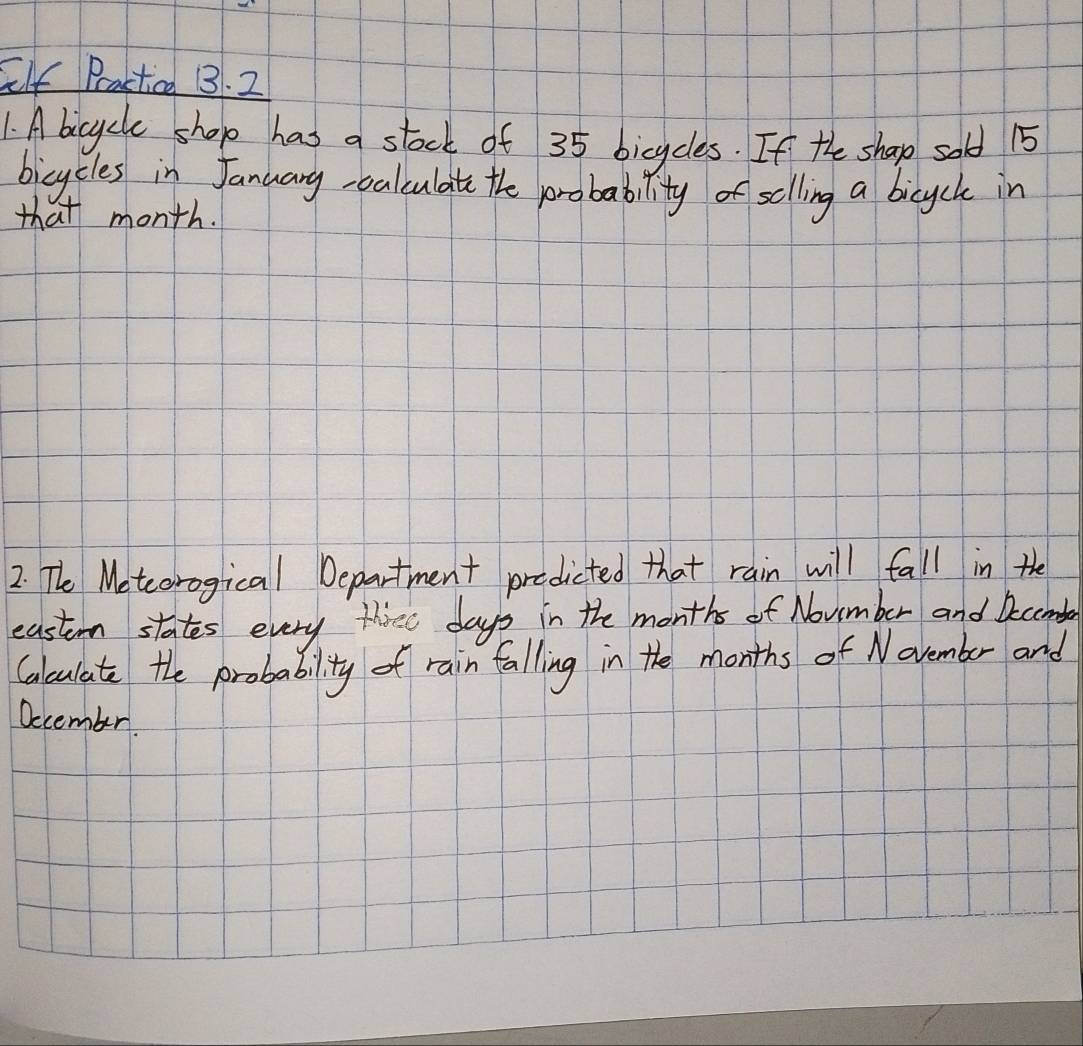 Self Practice 13.2
1. A bicycle shop has a stock of 35 bicycles. If the shop sold 15
bicycles in January, calculate the probability of selling a bicycle in
that month.
2. The Meteorogical Department predicted that rain will fall in the
eastern states every three days in the months of November and December
Calculate the probability of rain falling in the months of November and
December.